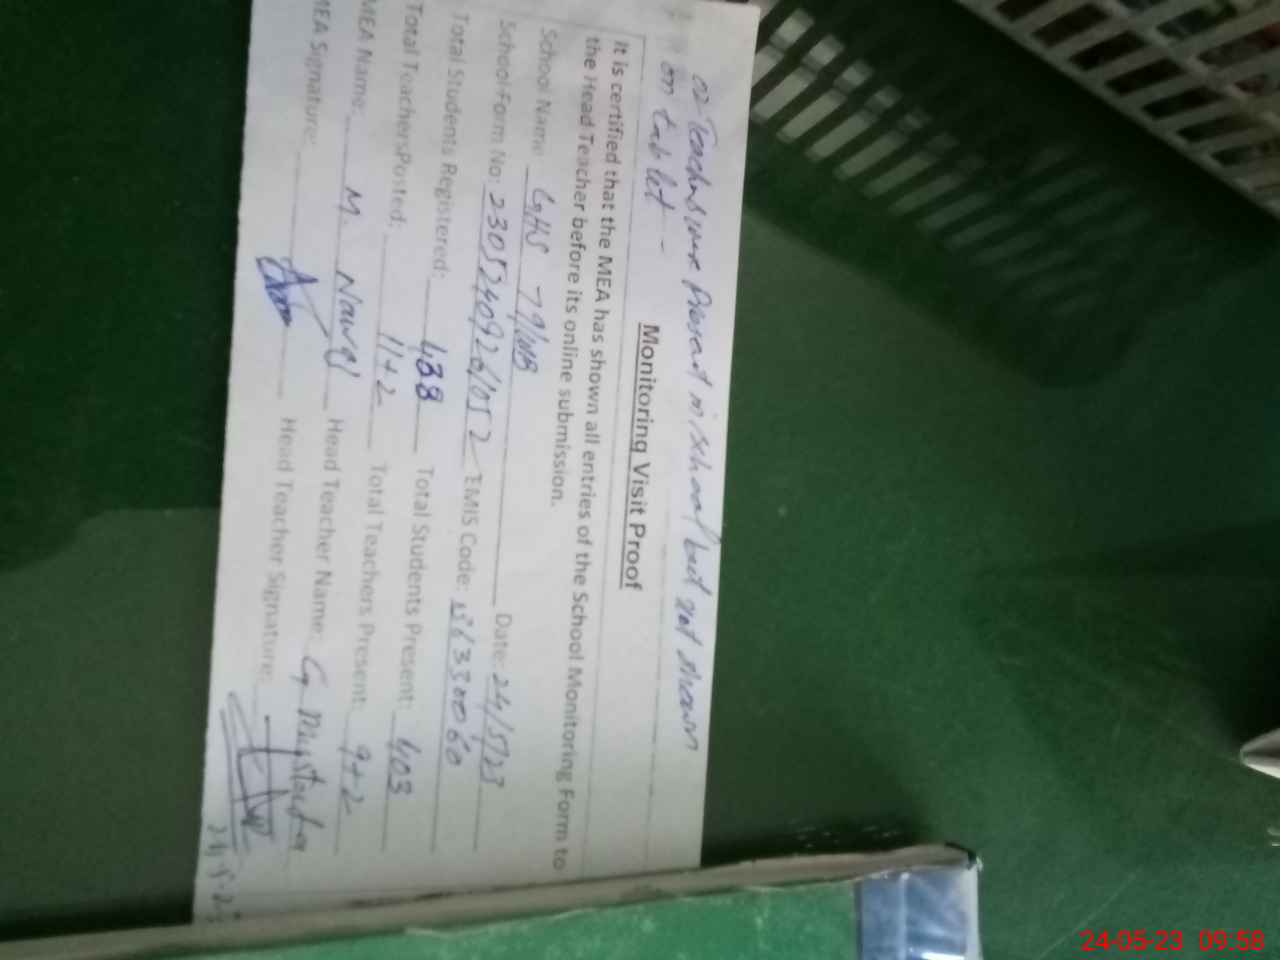 02 Teachers were Present in school but not shown
on tablet -
Monitoring Visit Proof
It is certified that the MEA has shown all entries of the School Monitoring Form to
the Head Teacher before its online submission.
School Name GHS 79/WB Date: 24/5/23
School Form No: EMIS Code:
Total Students Registered: 438 Total Students Present: 403
Total TeachersPosted: 11+2 Total Teachers Present: 9+2
MEA Name: M. Nawaz Head Teacher Name: G. Mustafa
MEA Signature: Head Teacher Signature:
24-05-23 09:58